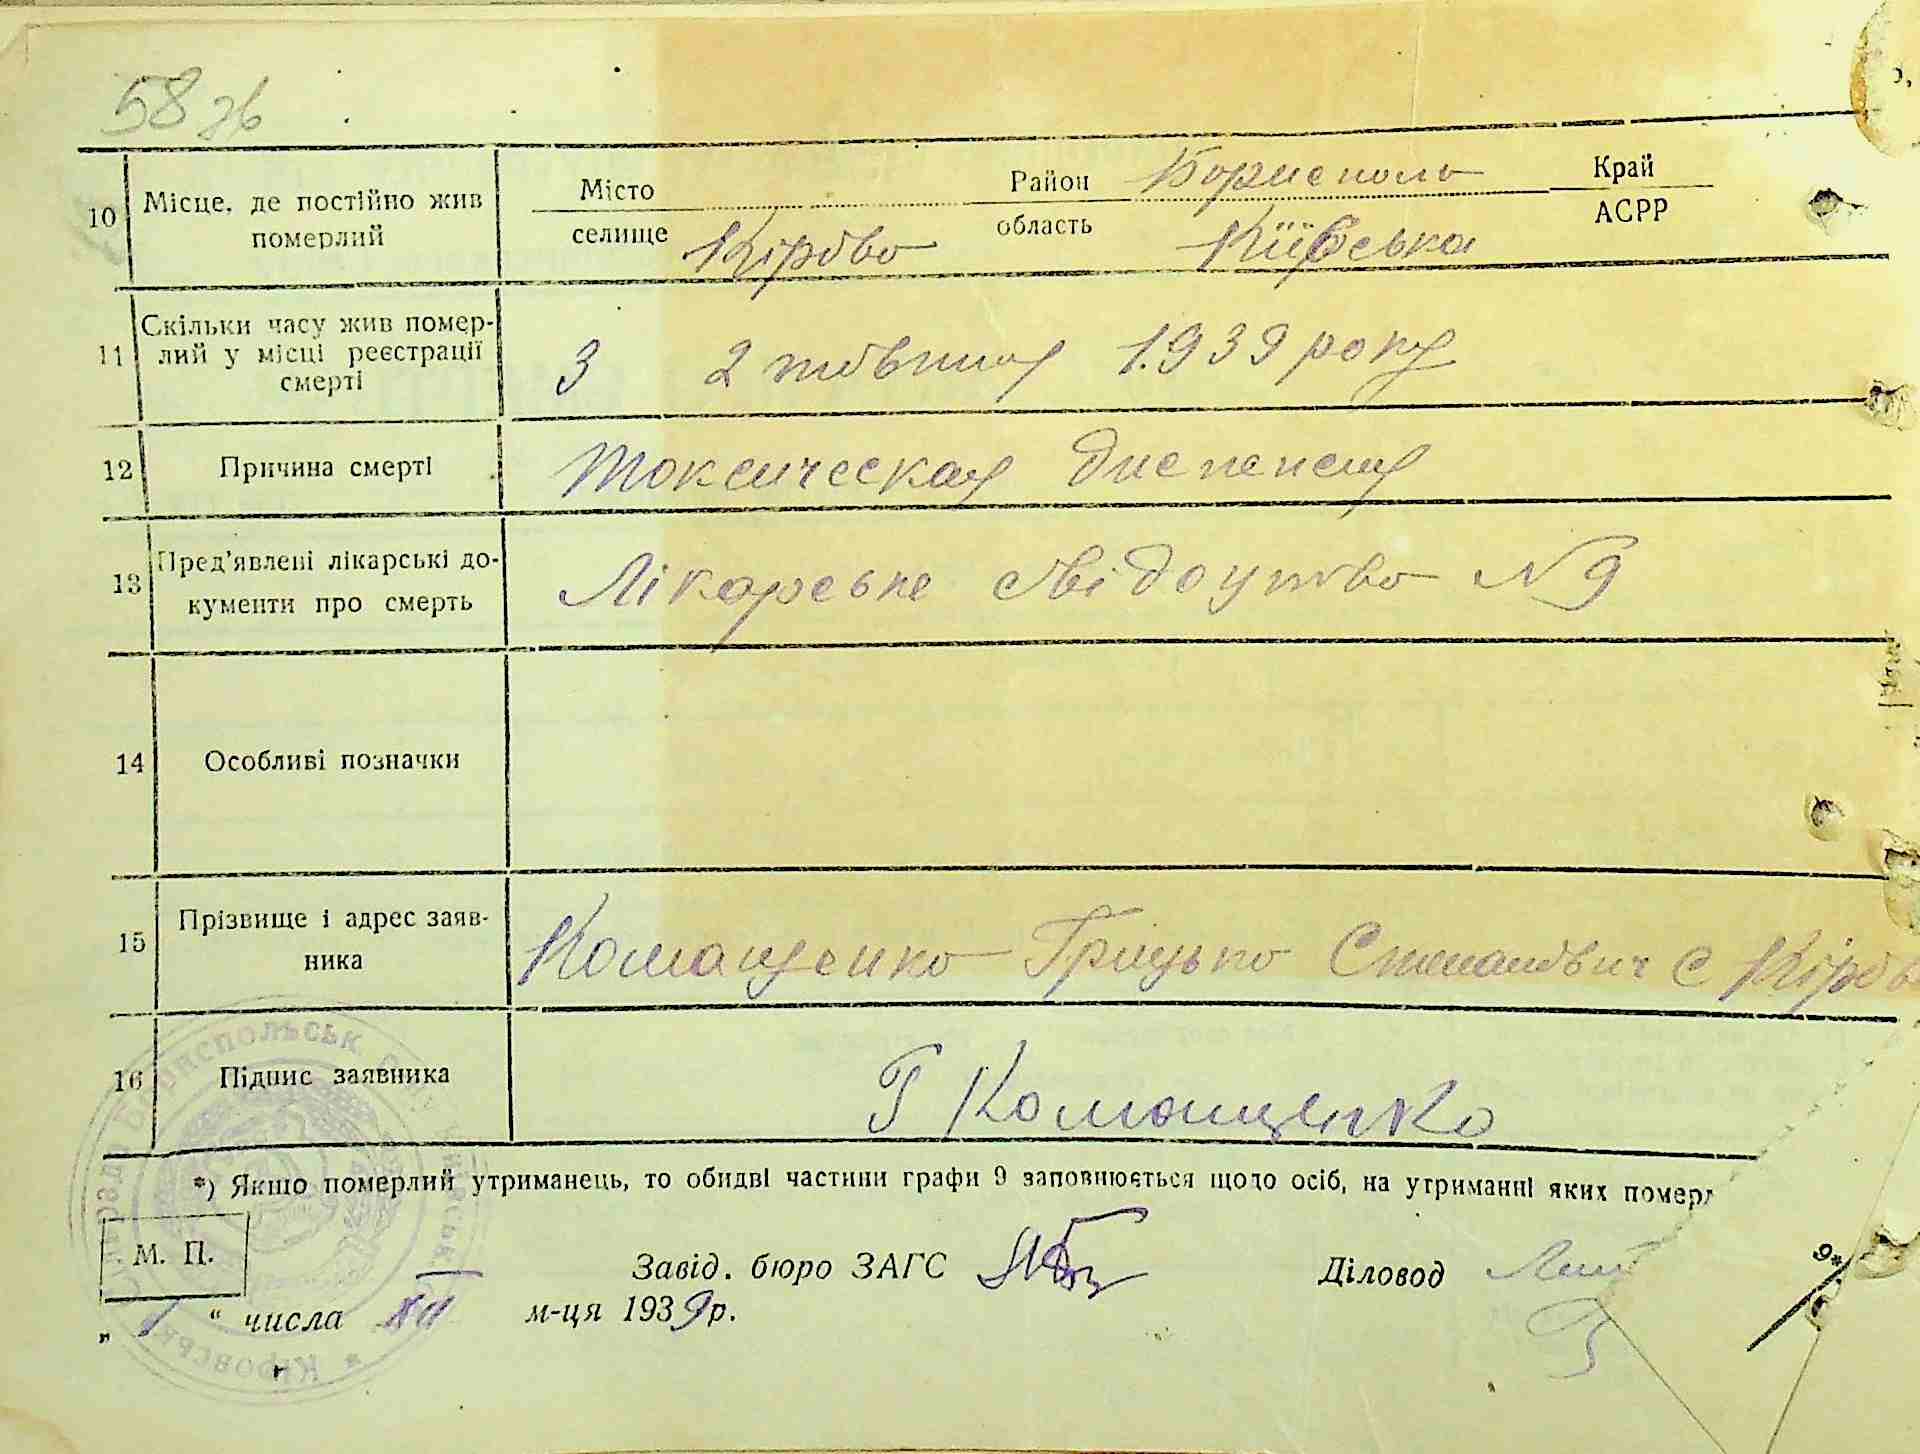 58 зв
10 Місце, де постійно жив померлий Місто Район Бориспол Край
селище Кірово область Київська АСРР
11 Скільки часу жив помер-
лий у місці реєстрації
смерті З 2 жовтня 1939 року
12 Причина смерті Токсическая диспепсия
13 Пред'явлені лікарські до-
кументи про смерть Лікарське свідоцтво N 9
14 Особливі позначки
15 Прізвище і адрес заяв-
ника Комащенко Грицько Степанович с Кірово
16 Підпис заявника Г Комащенко
*) Якщо померлий утриманець, то обидві частини графи 9 заповнюється щодо осіб, на утриманні яких помер
М. П.
Завід. бюро ЗАГС Діловод
9*
„ 1 “ числа XII м-ця 1939 р.